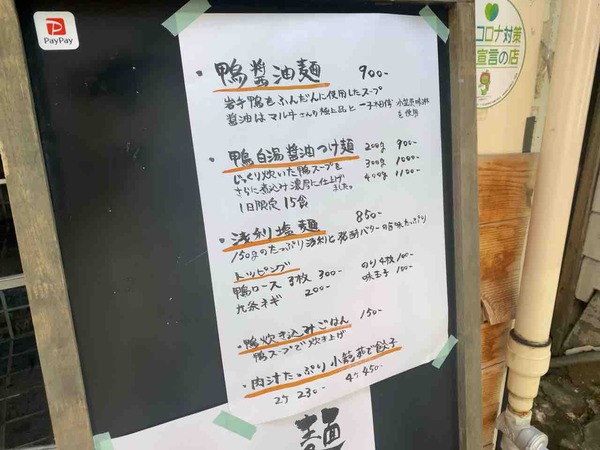 PayPay
コロナ対策
宣言の店
・鴨醤油麺 900-
岩手鴨をふんだんに使用したスープ
醤油はマルキさんの極上品と
を使用
・鴨白湯醤油つけ麺 200g 900-
じっくり炊いた鴨スープを 300g 1000-
さらに煮込み濃厚に仕上げました。 400g 1100-
1日限定15食
・浅利塩麺 850-
150gのたっぷり浅利と発酵バターの旨味たっぷり
トッピング
鴨ロース 3枚 300- のり4枚 100-
九条ネギ 200- 味玉子 100-
・鴨炊き込みごはん 150-
鴨スープで炊き上げ
・肉汁たっぷり小籠茹で餃子
2ケ 230- 4ケ 450-
麺